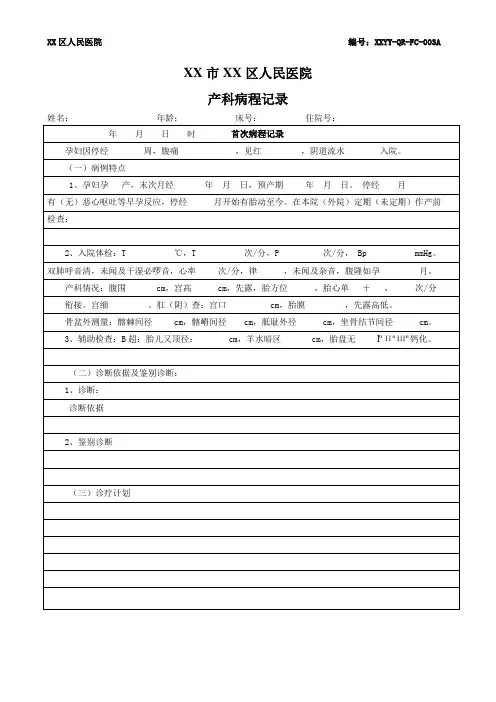 XX区人民医院 编号：XXYY-QR-FC-003A
XX 市 XX 区人民医院
产科病程记录
姓名： 年龄： 床号： 住院号：
年 月 日 时 首次病程记录
孕妇因停经 周，腹痛 ，见红 ，阴道流水 入院。
（一）病例特点
1、孕妇孕 产，末次月经 年 月 日，预产期 年 月 日。 停经 月
有（无）恶心呕吐等早孕反应，停经 月开始有胎动至今。在本院（外院）定期（未定期）作产前
检查：
2、入院体检：T ℃，T 次/分，P 次/分， Bp mmHg。
双肺呼音清，未闻及干湿必啰音，心率 次/分，律 ，未闻及杂音，腹隆如孕 月。
产科情况：腹围 cm，宫高 cm，先露，胎方位 ，胎心单 + ， 次/分
衔接。宫缩 。肛（阴）查：宫口 cm，胎膜 ，先露高低。
骨盆外测量：髂棘间径 cm，髂嵴间径 cm，骶耻外径 cm，坐骨结节间径 cm。
3、辅助检查：B 超：胎儿又顶径： cm，羊水暗区 cm，胎盘无 Iº Πº Шº钙化。
（二）诊断依据及鉴别诊断：
1、诊断：
诊断依据
2、鉴别诊断
（三）诊疗计划